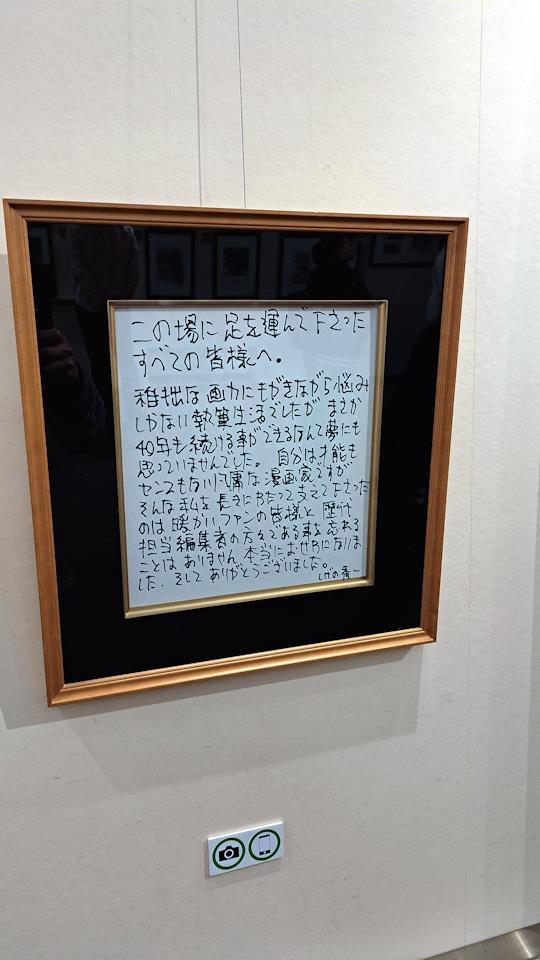 この場に足を運んで下さった
すべての皆様へ。
稚拙な画力にもがきながら悩み
しかない執筆生活でしたが まさか
40年も続ける事ができるなんて夢にも
思っていませんでした。 自分は才能も
センスもない凡庸な漫画家ですが
そんな私を長きにわたって支えて下さった
のは暖かいファンの皆様と 歴代
担当編集者の方々である事を忘れる
ことはありません。本当にお世わになりま
した. そして ありがとうございました。
しげの秀一